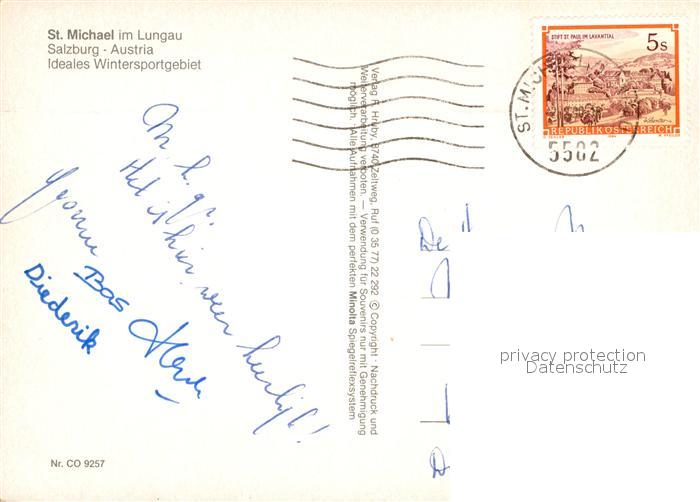 St. Michael im Lungau
Salzburg - Austria
Ideales Wintersportgebiet
STIFT ST. PAUL IM LAVANTTAL
5s
REPUBLIK ÖSTERREICH
ST. MICH
5582
Verlag R. Hruby, 8740 Zeltweg, Ruf (0 35 77) 22 292 © Copyright · Nachdruck und
Weiterverarbeitung verboten. — Verwendung für Souvenirs nur mit Genehmigung
möglich. · Alle Aufnahmen mit dem perfekten Minolta Spiegelreflexsystem
M. h. gr.
Het is hier weer heerlijk!
Yvonne Bas
Diederik
De
privacy protection
Datenschutz
Nr. CO 9257